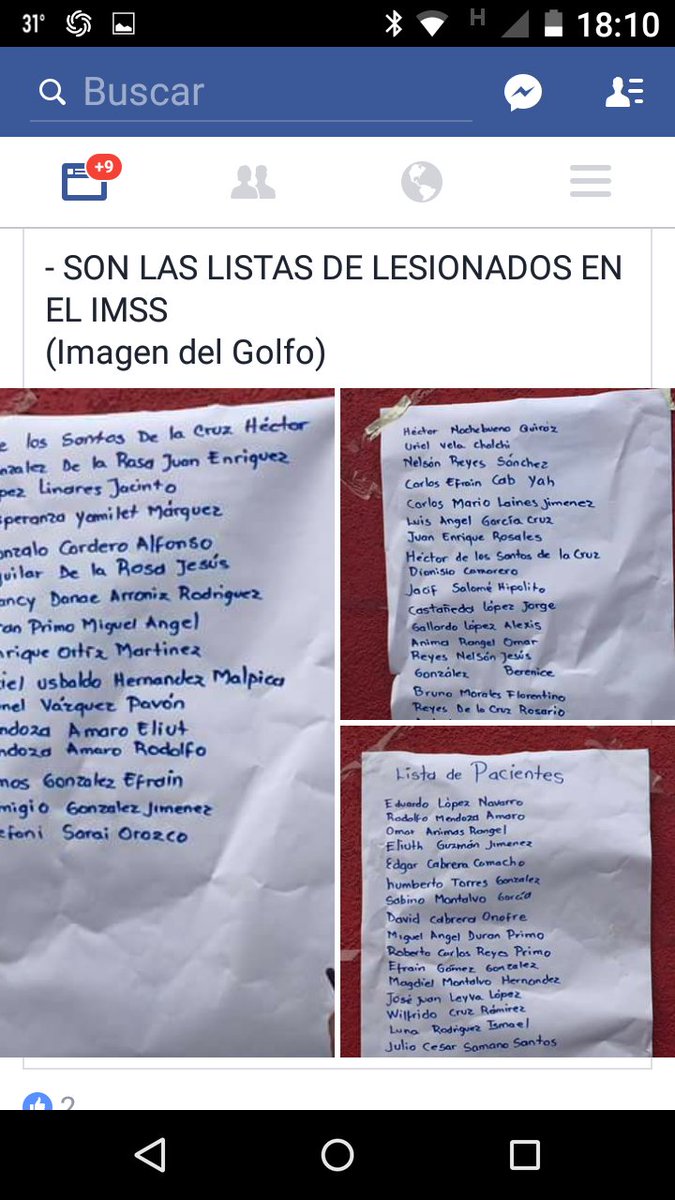 31°
H
18:10
Buscar
+9
- SON LAS LISTAS DE LESIONADOS EN
EL IMSS
(Imagen del Golfo)
e los Santos De la Cruz Héctor
nzalez De la Rosa Juan Enriquez
pez Linares Jacinto
speranza Yamilet Márquez
onzalo Cordero Alfonso
uilar De la Rosa Jesús
ancy Danae Arroniz Rodriguez
ran Primo Miguel Angel
nrique Ortiz Martinez
iel Usbaldo Hernandez Malpica
onel Vázquez Pavón
ndoza Amaro Eliut
ndoza Amaro Rodolfo
mos Gonzalez Efrain
migio Gonzalez Jimenez
efani Sarai Orozco
Héctor Nochebuena Quiroz
Uriel Vela Cholchi
Nelson Reyes Sánchez
Carlos Efrain Cab Yah
Carlos Mario Laines Jimenez
Luis Angel García Cruz
Juan Enrique Rosales
Héctor de los Santos de la Cruz
Dionisio Camarero
Salomé Hipolito
Castañeda López Jorge
Gallardo López Alexis
Anima Rangel Omar
Reyes Nelson Jesús
González Berenice
Bruno Morales Florentino
Reyes De la Cruz Rosario
Lista de Pacientes
Eduardo López Navarro
Rodolfo Mendoza Amaro
Omar Animas Rangel
Eliuth Guzmán Jimenez
Edgar Cabrera Camacho
humberto Torres Gonzalez
Sabino Montalvo García
David Cabrera Onofre
Miguel Angel Duran Primo
Roberto Carlos Reyes Primo
Efrain Gómez Gonzalez
Magdiel Montalvo Hernandez
José Juan Leyva López
Wilfrido Cruz Rámirez
Luna Rodriguez Ismael
Julio Cesar Samano Santos
2